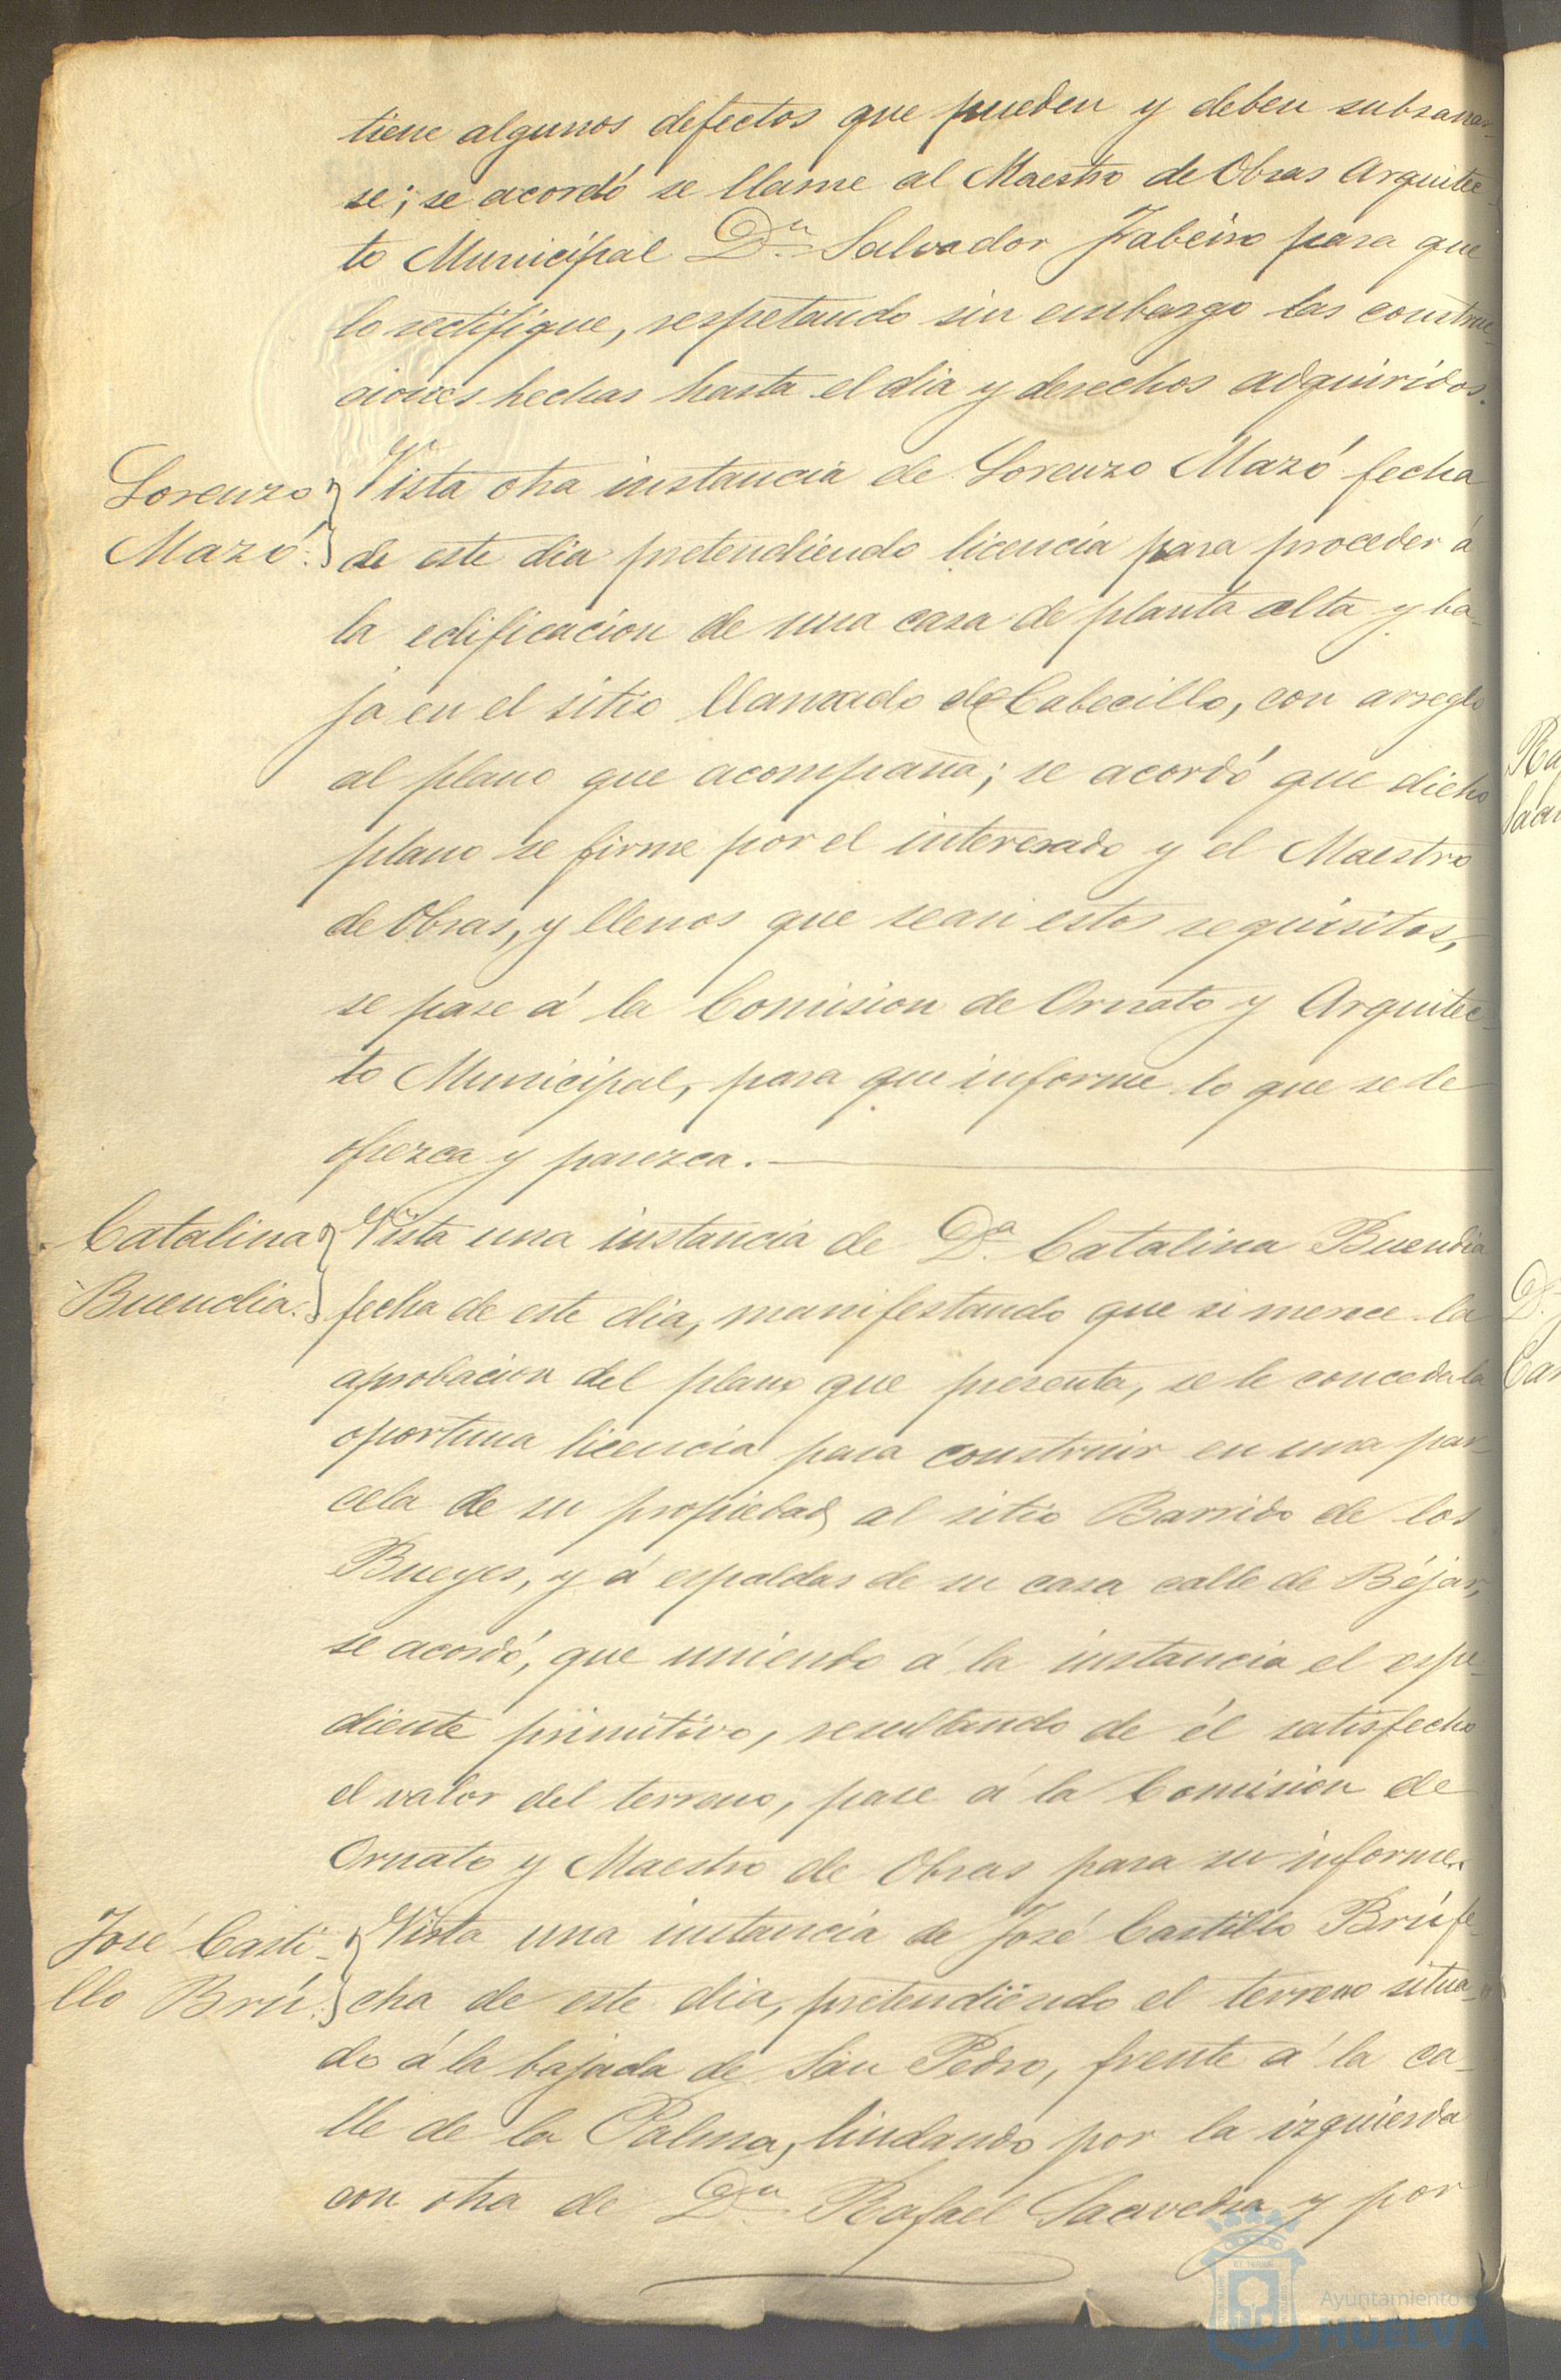 tiene algunos defectos que pueden y deben subsanar-
se; se acordó se llame al Maestro de Obras Arquitec-
to Municipal Dn. Salvador Zabeiro para que
lo rectifique, respetando sin embargo las construc-
ciones hechas hasta el dia y derechos adquiridos.
Lorenzo
Mazó.
Vista otra instancia de Lorenzo Mazó fecha
de este dia pretendiendo licencia para proceder á
la edificacion de una casa de planta alta y ba-
ja en el sitio llamado del Cabecillo, con arreglo
al plano que acompaña; se acordó que dicho
plano se firme por el interesado y el Maestro
de Obras, y llenos que sean estos requisitos,
se pase á la Comision de Ornato y Arquitec-
to Municipal, para que informe lo que se le
ofrezca y parezca.
Catalina
Buendia.
Vista una instancia de Da. Catalina Buendia
fecha de este dia, manifestando que si merece la
aprobacion del plano que presenta, se le conceda la
oportuna licencia para construir en una par-
cela de su propiedad al sitio Barrido de los
Bueyes, y á espaldas de su casa calle de Béjar,
se acordó, que uniendo á la instancia el espe-
diente primitivo, resultando de él satisfecho
el valor del terreno, pase á la Comision de
Ornato y Maestro de Obras para su informe.
José Casti-
llo Brú.
Vista una instancia de José Castillo Brú fe-
cha de este dia, pretendiendo el terreno situa-
do á la bajada de San Pedro, frente á la ca-
lle de la Palma, lindando por la izquierda
con otra de Dn. Rafael Saavedra y por
Ayuntamiento de
HUELVA